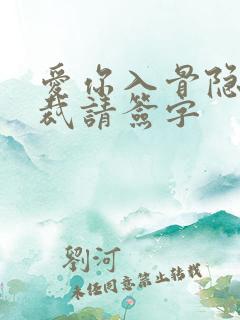 爱你入骨隐
裁請簽字
劉河
未经同意禁止转载